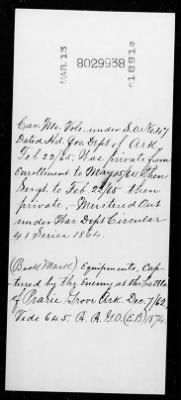 MAR 13
1891
8029938
Can. Mo. Vols. under S.O. No 47
Dated Hd. Qrs. Dept of Ark
Feb 22/65. Was private from
Enrollment to May 15/64 then
Sergt to Feb 22/65 then
private. Mustered Out
under War Dept Circular
41 Series 1864.
(Book Mark) Equipments, Cap-
tured by the Enemy at the Battle
of Prarie Grove Ark. Dec. 7/62
Vide 645. A.A.G.O. (E.B) 1874.